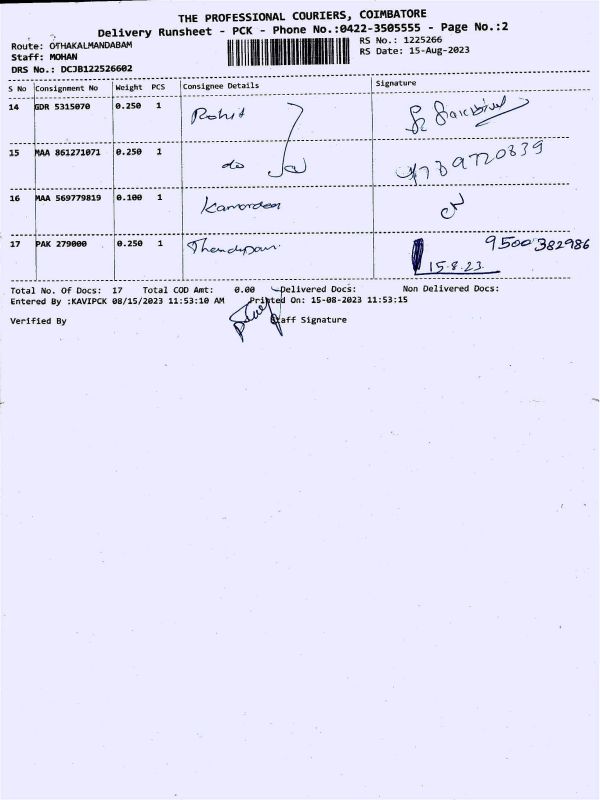 THE PROFESSIONAL COURIERS, COIMBATORE
Delivery Runsheet - PCK - Phone No.:0422-3505555 - Page No.:2
Route: OTHAKALMANDABAM
RS No.: 1225266
Staff: MOHAN
RS Date: 15-Aug-2023
DRS No.: DCJB122526602
S No Consignment No Weight PCS Consignee Details Signature
14 GDR 5315070 0.250 1 Rohit
15 MAA 861271071 0.250 1 do 9789720839
16 MAA 569779819 0.100 1
17 PAK 279000 0.250 1 9500382986
15.8.23
Total No. Of Docs: 17 Total COD Amt: 0.00 Delivered Docs: Non Delivered Docs:
Entered By :KAVIPCK 08/15/2023 11:53:10 AM Printed On: 15-08-2023 11:53:15
Verified By Staff Signature